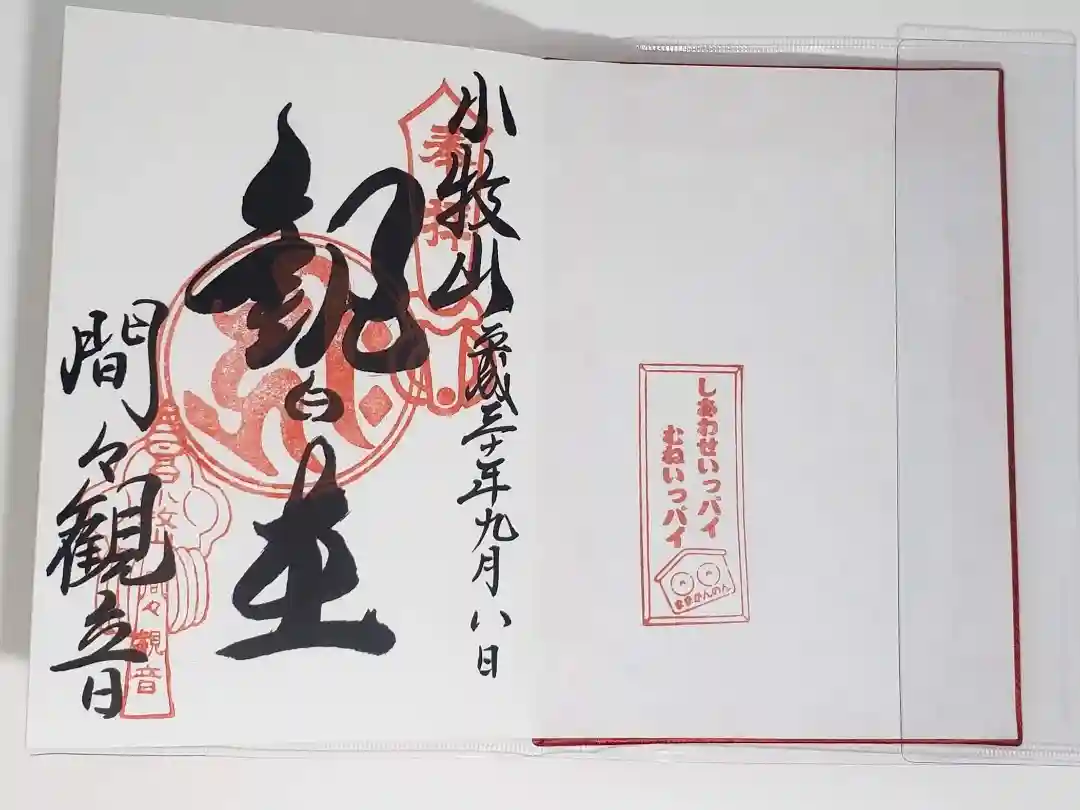 しあわせいっパイ
むねいっパイ
ままかんのん
奉拝
小牧山 平成三十年九月八日
間々観音
小牧山間々観音